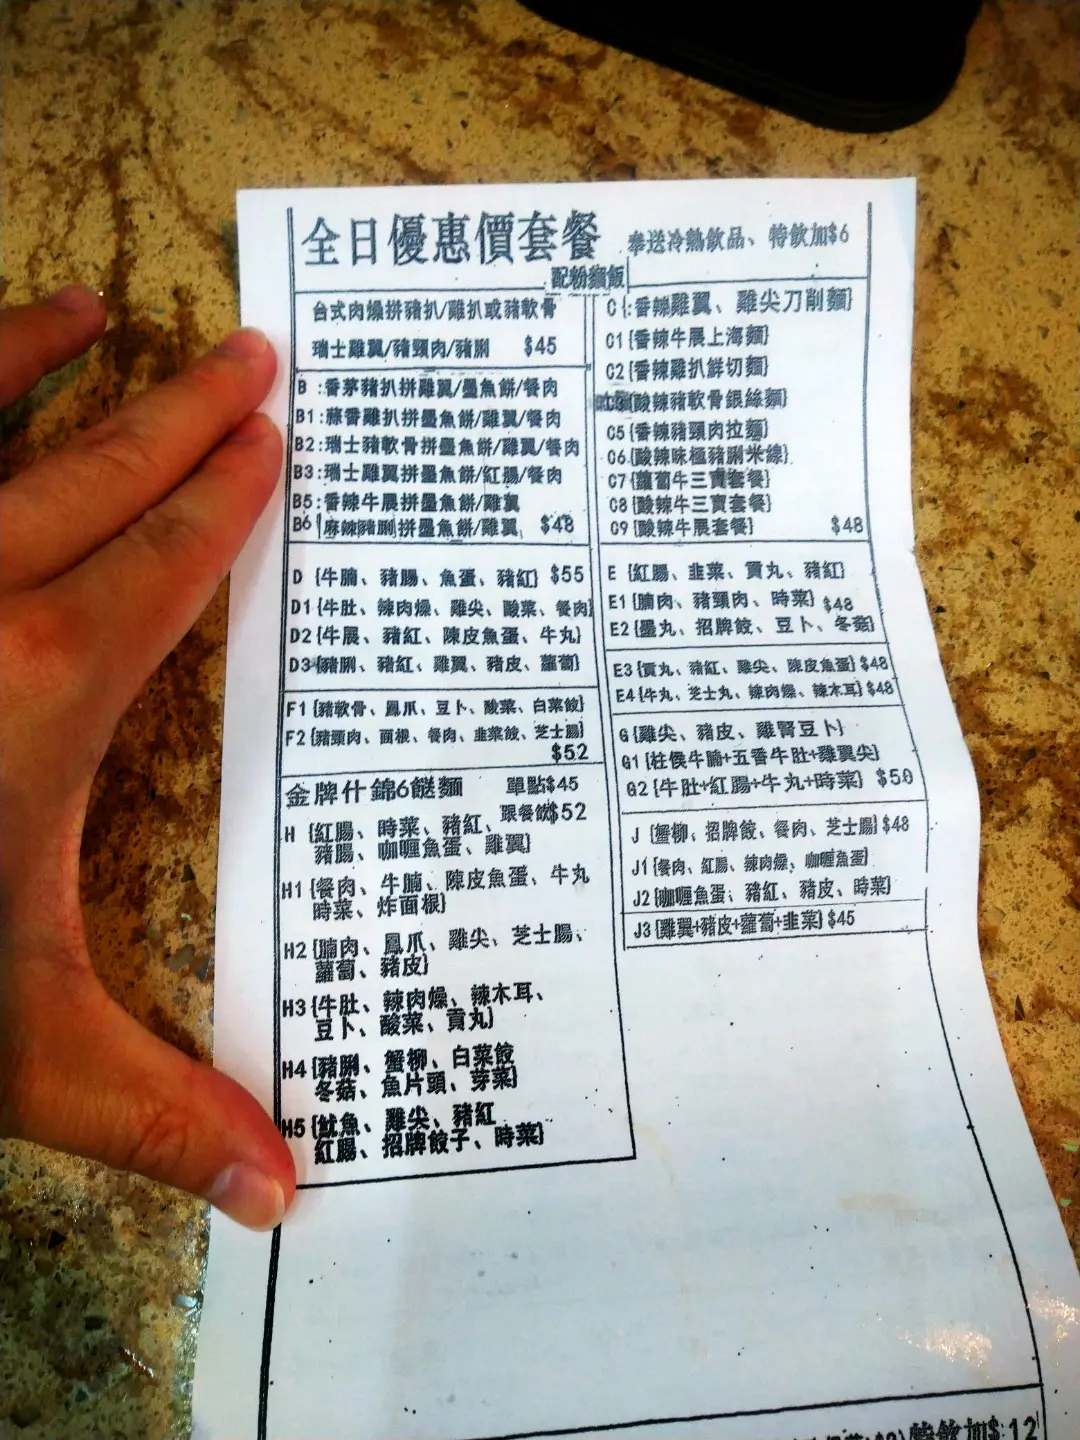 全日優惠價套餐
奉送冷熱飲品、特飲加$6
配粉麵飯
台式肉燥拼豬扒/雞扒或豬軟骨
瑞士雞翼/豬頸肉/豬脷 $45
B :香茅豬扒拼雞翼/墨魚餅/餐肉
B1:蒜香雞扒拼墨魚餅/雞翼/餐肉
B2:瑞士豬軟骨拼墨魚餅/雞翼/餐肉
B3:瑞士雞翼拼墨魚餅/紅腸/餐肉
B5:香辣牛展拼墨魚餅/雞翼
B6 麻辣豬脷拼墨魚餅/雞翼 $48
D {牛腩、豬腸、魚蛋、豬紅} $55
D1{牛肚、辣肉燥、雞尖、酸菜、餐肉}
D2{牛展、豬紅、陳皮魚蛋、牛丸}
D3{豬脷、豬紅、雞翼、豬皮、蘿蔔}
F1{豬軟骨、鳳爪、豆卜、酸菜、白菜餃}
F2{豬頸肉、面根、餐肉、韭菜餃、芝士腸}
$52
金牌什錦6餸麵 單點$45
跟餐飲$52
H {紅腸、時菜、豬紅、
豬腸、咖喱魚蛋、雞翼}
H1{餐肉、牛腩、陳皮魚蛋、牛丸
時菜、炸面根}
H2{腩肉、鳳爪、雞尖、芝士腸、
蘿蔔、豬皮}
H3{牛肚、辣肉燥、辣木耳、
豆卜、酸菜、貢丸}
H4{豬脷、蟹柳、白菜餃
冬菇、魚片頭、芽菜}
H5{魷魚、雞尖、豬紅
紅腸、招牌餃子、時菜}
C {:香辣雞翼、雞尖刀削麵}
C1{香辣牛展上海麵}
C2{香辣雞扒鮮切麵}
{酸辣豬軟骨銀絲麵}
C5{香辣豬頸肉拉麵}
C6{酸辣味極豬脷米線}
C7{蘿蔔牛三寶套餐}
C8{酸辣牛三寶套餐}
C9{酸辣牛展套餐} $48
E {紅腸、韭菜、貢丸、豬紅}
E1{腩肉、豬頸肉、時菜} $48
E2{墨丸、招牌餃、豆卜、冬菇}
E3{貢丸、豬紅、雞尖、陳皮魚蛋} $48
E4{牛丸、芝士丸、辣肉燥、辣木耳} $48
G {雞尖、豬皮、雞腎豆卜}
G1{柱侯牛腩+五香牛肚+雞翼尖}
G2{牛肚+紅腸+牛丸+時菜} $50
J {蟹柳、招牌餃、餐肉、芝士腸} $48
J1{餐肉、紅腸、辣肉燥、咖喱魚蛋}
J2{咖喱魚蛋、豬紅、豬皮、時菜}
J3{雞翼+豬皮+蘿蔔+韭菜} $45
特飲加$:12